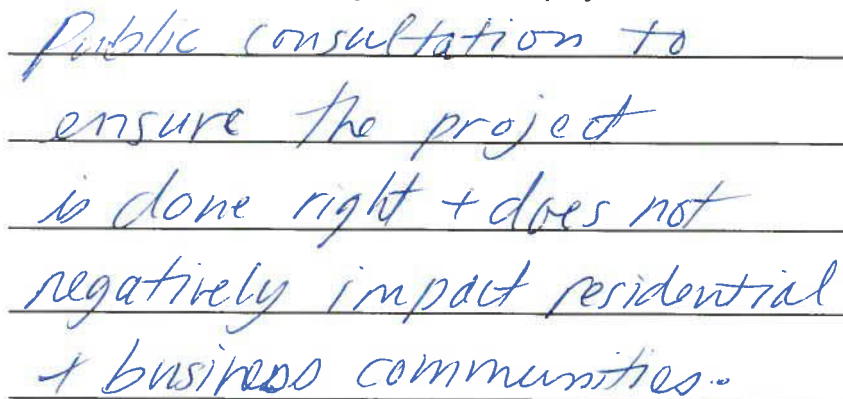 Public consultation to
ensure the project
is done right + does not
negatively impact residential
+ business communities.